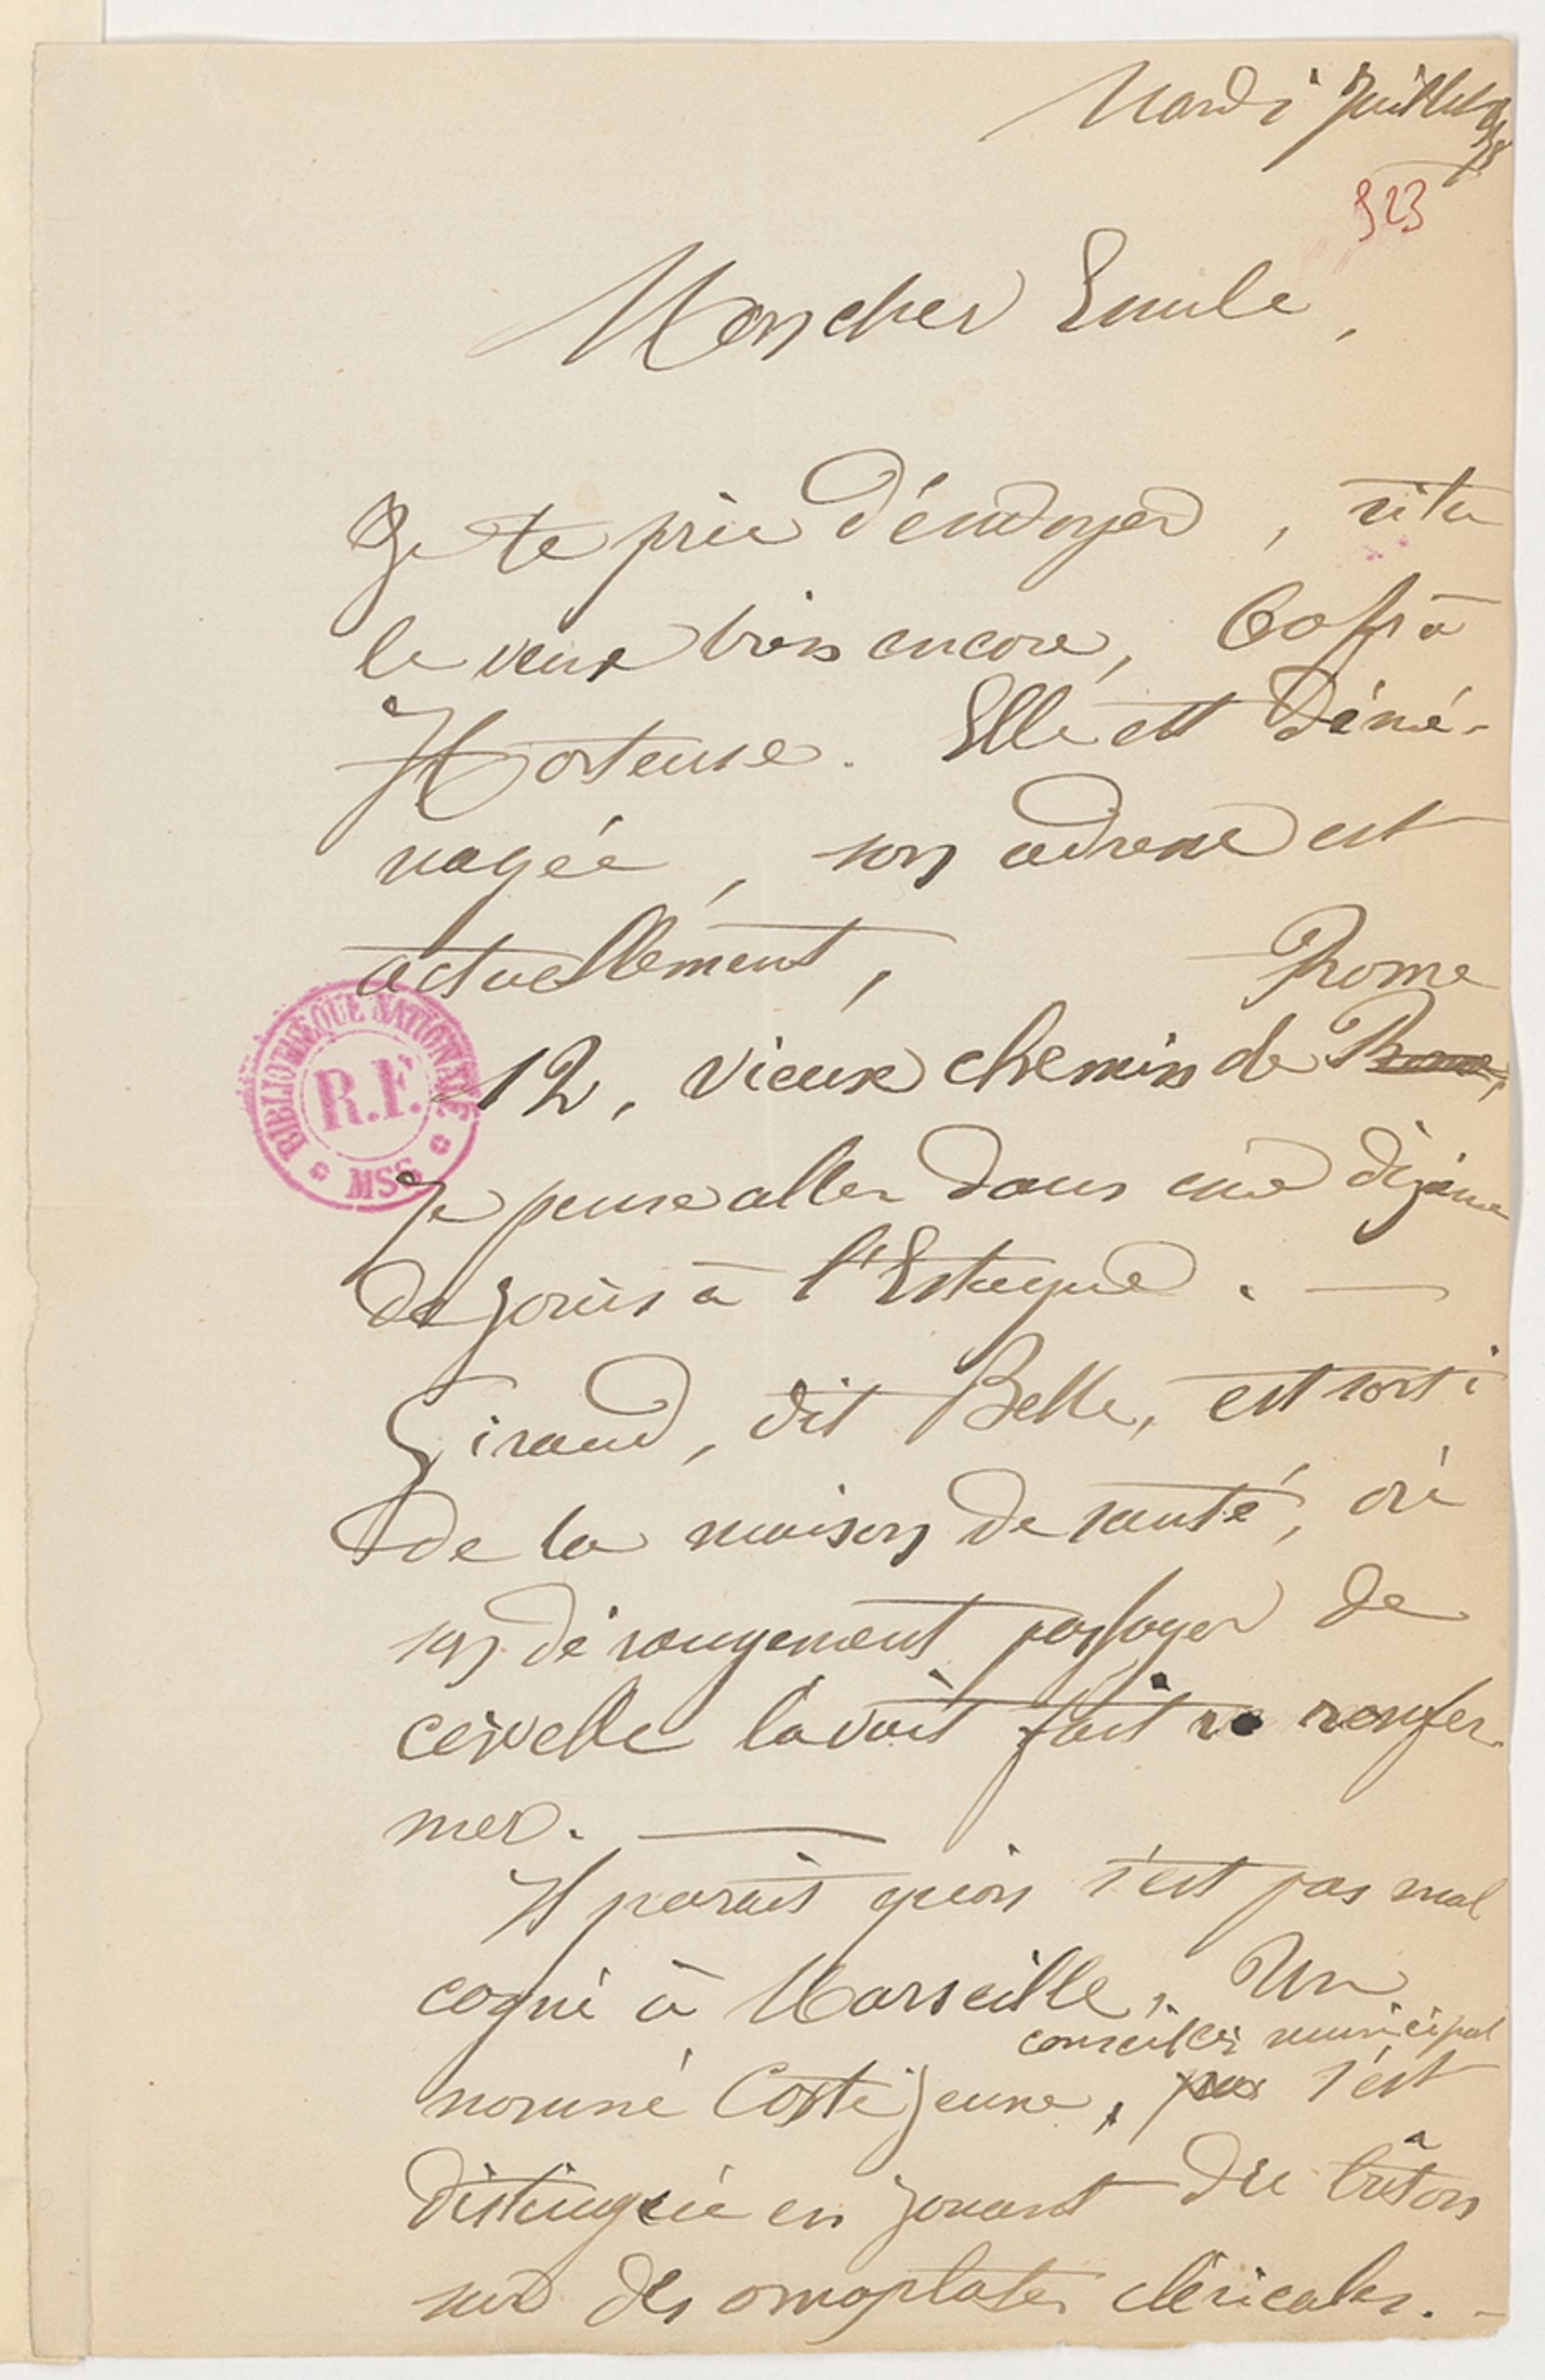 Mardi Juillet 78
523
Mon cher Emile,
Je te prie d'envoyer, si tu
le veux bien encore, 60 f. à
Hortense. Elle est démé-
nagée, son adresse est
actuellement,
Rome
12, vieux chemin de Rome,
Je pense aller dans une dizaine
de jours à l'Estaque. —
Giraud, dit Belle, est sorti
de la maison de santé, où
son dérangement passager de
cervelle l'avait fait renfer-
mer. —
Il parait qu'on s'est pas mal
cogné à Marseille. Un
conseiller municipal
nommé Coste jeune, s'est
distingué en jouant du bâton
sur des omoplates cléricales. -
BIBLIOTHÈQUE NATIONALE
R.F.
MSS